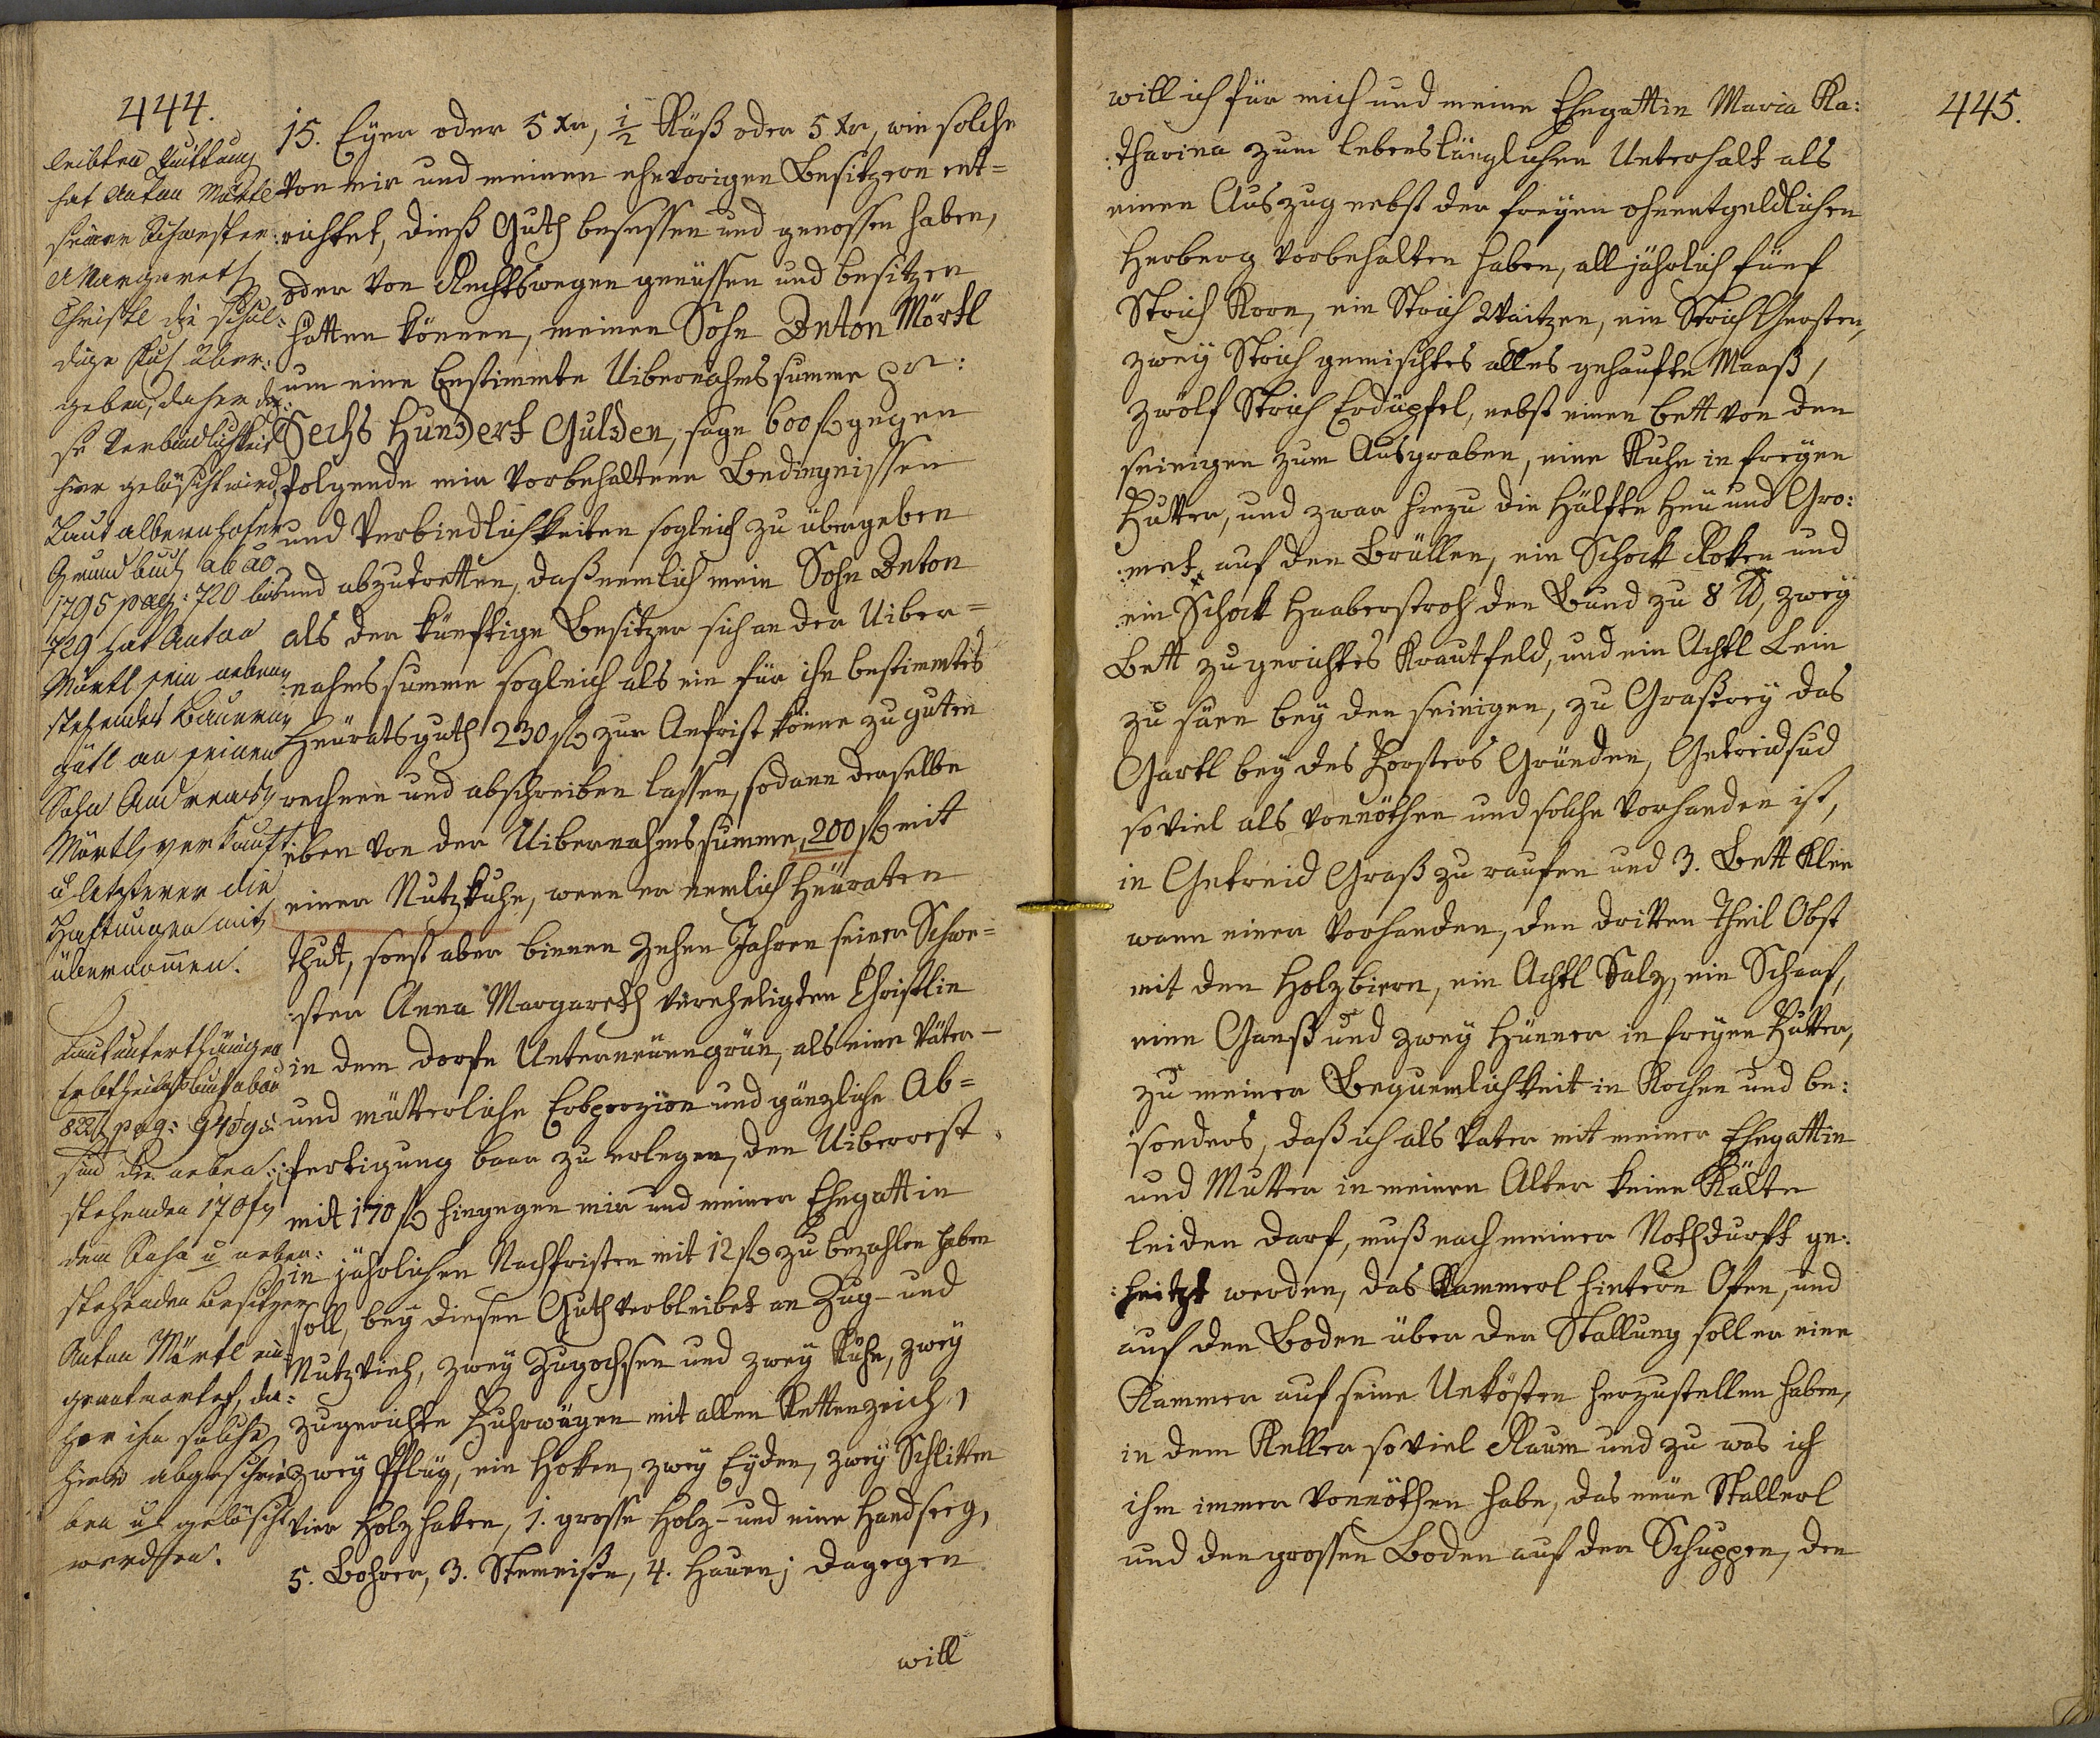 444.
15. Eÿer oder 5 Xr, 1/2 Käß oder 5 Xr, wie solche
von mir und meinen ehevorigen Besitzern ent=
richtet, dieß Guth besessen und genossen haben,
oder von Rechtswegen genüssen und besitzen
hätten können, meinen Sohn Anton Mörtl
um eine bestimmte Uibernahmssumme pr:
Sechs Hundert Gulden, sage 600 f gegen
folgende mir vorbehaltene Bedingnissen
und Verbindlichkeiten sogleich zu übergeben
und abzutretten, daß nemlich mein Sohn Anton
als der künftige Besitzer sich an der Uiber=
nahmssumme sogleich als ein für ihn bestimmtes
Heüratsguth 230 f zur Anfrist könne zu guten
rechnen und abschreiben lassen, sodann derselbe
eben von der Uibernahmssumme, 200 f mit
einer Nutzkuhe, wenn er nemlich heüraten
thut, sonst aber binnen zehen Jahren seiner Schwe=
:ster Anna Margareth verehligten Christlin
in dem Dorfe Unterneüengrün, als eine Väter-
und mütterliche Erbporzion und gänzliche Ab=
:fertigung baar zu erlegen, den Uiberrest
mit 170 f hingegen mir und meiner Ehegattin
in jährlichen Nachfristen mit 12 f zu bezahlen haben
soll, beÿ diesen Guth verbleibet an Zug- und
Nutzvieh, zweÿ Zugochsen und zweÿ Kühe, zweÿ
zugerichte Fuhrwägen mit allen Kettenzeich, 1
zweÿ Pflüg, ein Hoken, zweÿ Eÿden, zweÿ Schlitten
vier Holzhaken, 1. grosse Holz- und eine Handseeg,
5. Bohrer, 3. Stemeißen, 4. Hauen; dagegen
will
leibten Quittung
hat Anton Mörtl
seiner Schwester
A Margareth
Christl die schul=
dige Kuh über:
geben, daher die:
se Verbindlichkeit
hier gelöscht wird
Laut albernhofer
Grundbuch ab ao
1795 pag: 720 bis
729 hat Anton
Mörtl sein neben
stehendes Bauern
gütl an seinen
Sohn Andreas
Mörtl verkauft
u letzterer die
Haftungen mit
übernommen.
Laut unterthänigen
Erbtheilgsbuch ab ao
822 pag:
sind die neben:
stehenden 170 f
dem Sohn u neben:
stehenden Besitzer
Anton Mörtl ein
geantwortet, da:
her ihm solche
hier abgeschrie
ben u gelöscht
werden.
445.
will ich für mich und meine Ehegattin Maria Ka:
:tharina zum lebenslänglichen Unterhalt als
einen Auszug nebst der freÿen ohnentgeldlichen
Herberg vorbehalten haben, alljährlich fünf
Strich Korn, ein Strich Waitzen, ein Strich Gersten,
zweÿ Strich gemischtes alles gehaufte Maaß,
zwölf Strich Erdäpfel, nebst einen Bett von den
seinigen zum Ausgraben, eine Kuhe in freÿen
Futter, und zwar hiezu die Hälfte Heü und Gro:
:met auf den Brüllen, ein Schock Roken und
ein Schock Haaberstroh den Bund zu 8 ℔, zweÿ
Bett zugerichtes Krautfeld, und ein Achtl Lein
zu säen beÿ den seinigen, zu Graßereÿ das
Gartl beÿ des Forsters Gründen, Getreidsüd
soviel als vonnöthen und solche vorhanden ist,
in Getreid Graß zu raufen und 3. Bett Klee
wann einer vorhanden, den dritten Theil Obst
mit den Holzbiern, ein Achtl Salz, ein Schaaf,
eine Ganß und zweÿ Hünner in freÿen Futter,
zu meiner Bequemlichkeit in Kochen und be:
:sonders, daß ich als Vater mit meiner Ehegattin
und Mutter in meinem Alter keine Kälte
leiden darf, muß nach meiner Nothdurft ge:
:heitzt werden, das Kammerl hintern Ofen, und
auf den Boden über der Stallung soll er eine
Kammer auf seine Unkösten herzustellen haben,
in dem Keller soviel Raum und zu was ich
ihm immer vonnöthen habe, das neüe Stallerl
und den grossen Boden auf der Schuppen, den